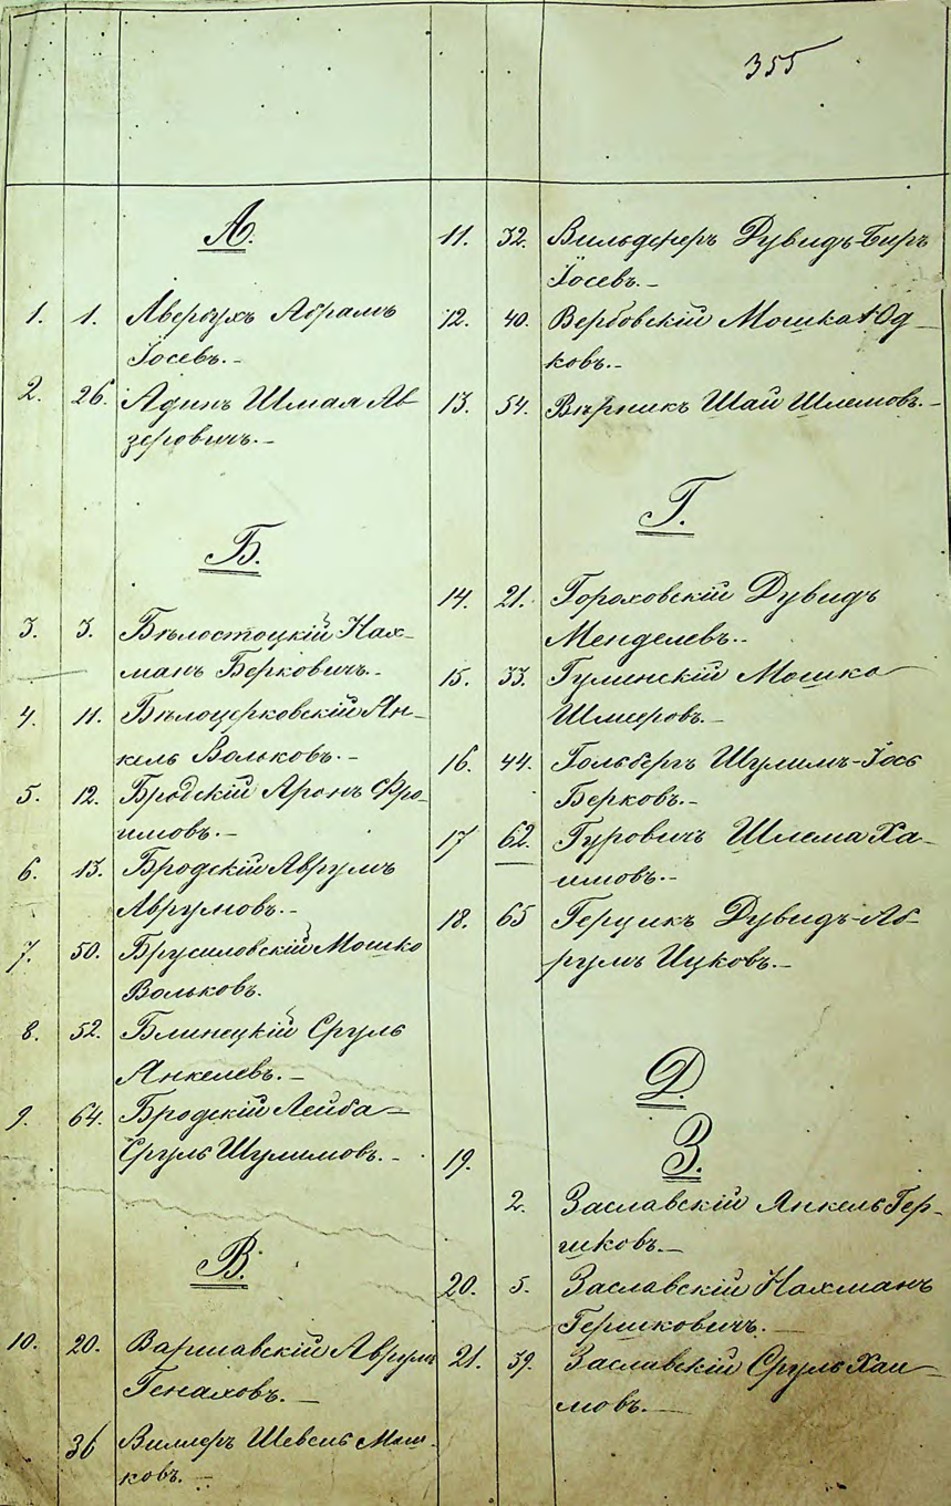 355
А.
1. 1. Авербухъ Абрамъ
Іосевъ.-
2. 26. Адинъ Шмая Ав
зеровичъ.-
Б.
3. 3. Бѣлостоцкій Нах-
манъ Берковичъ.-
4. 11. Бѣлоцерковскій Ян-
кель Вольковъ.-
5. 12. Бродскій Аронъ Фро-
имовъ.-
6. 13. Бродскій Аврумъ
Аврумовъ.-
7. 50. Брусиловскій Мошко
Вольковъ.
8. 52. Блинецкій Сруль
Янкелевъ.-
9. 64. Бродскій Лейба-
Сруль Шулимовъ.-
В.
10. 20. Варшавскій Аврумъ
Генаховъ.-
36 Виллеръ Шевель Мош-
ковъ.-
11. 32. Вильдгереръ Дувидъ-Беръ
Іосевъ.-
12. 40. Вербовскій Мошка Юд-
ковъ.-
13. 54. Вѣрникъ Шаи Шлемовъ.-
Г.
14. 21. Гороховскій Дувидъ
Менделевъ.-
15. 33. Гулинскій Мошко
Шмееровъ.-
16. 44. Гольбергъ Шулимъ-Іось
Берковъ.-
17 62. Гуровичъ Шлема Ха-
имовъ.-
18. 65 Герцикъ Дувидъ-Аб-
румъ Ицковъ.-
Д.
З.
19.
2. Заславскій Янкель Гер-
шковъ.-
20. 5. Заславскій Нахманъ
Гершковичъ.-
21. 39. Заславскій Сруль Хаи-
мовъ.-